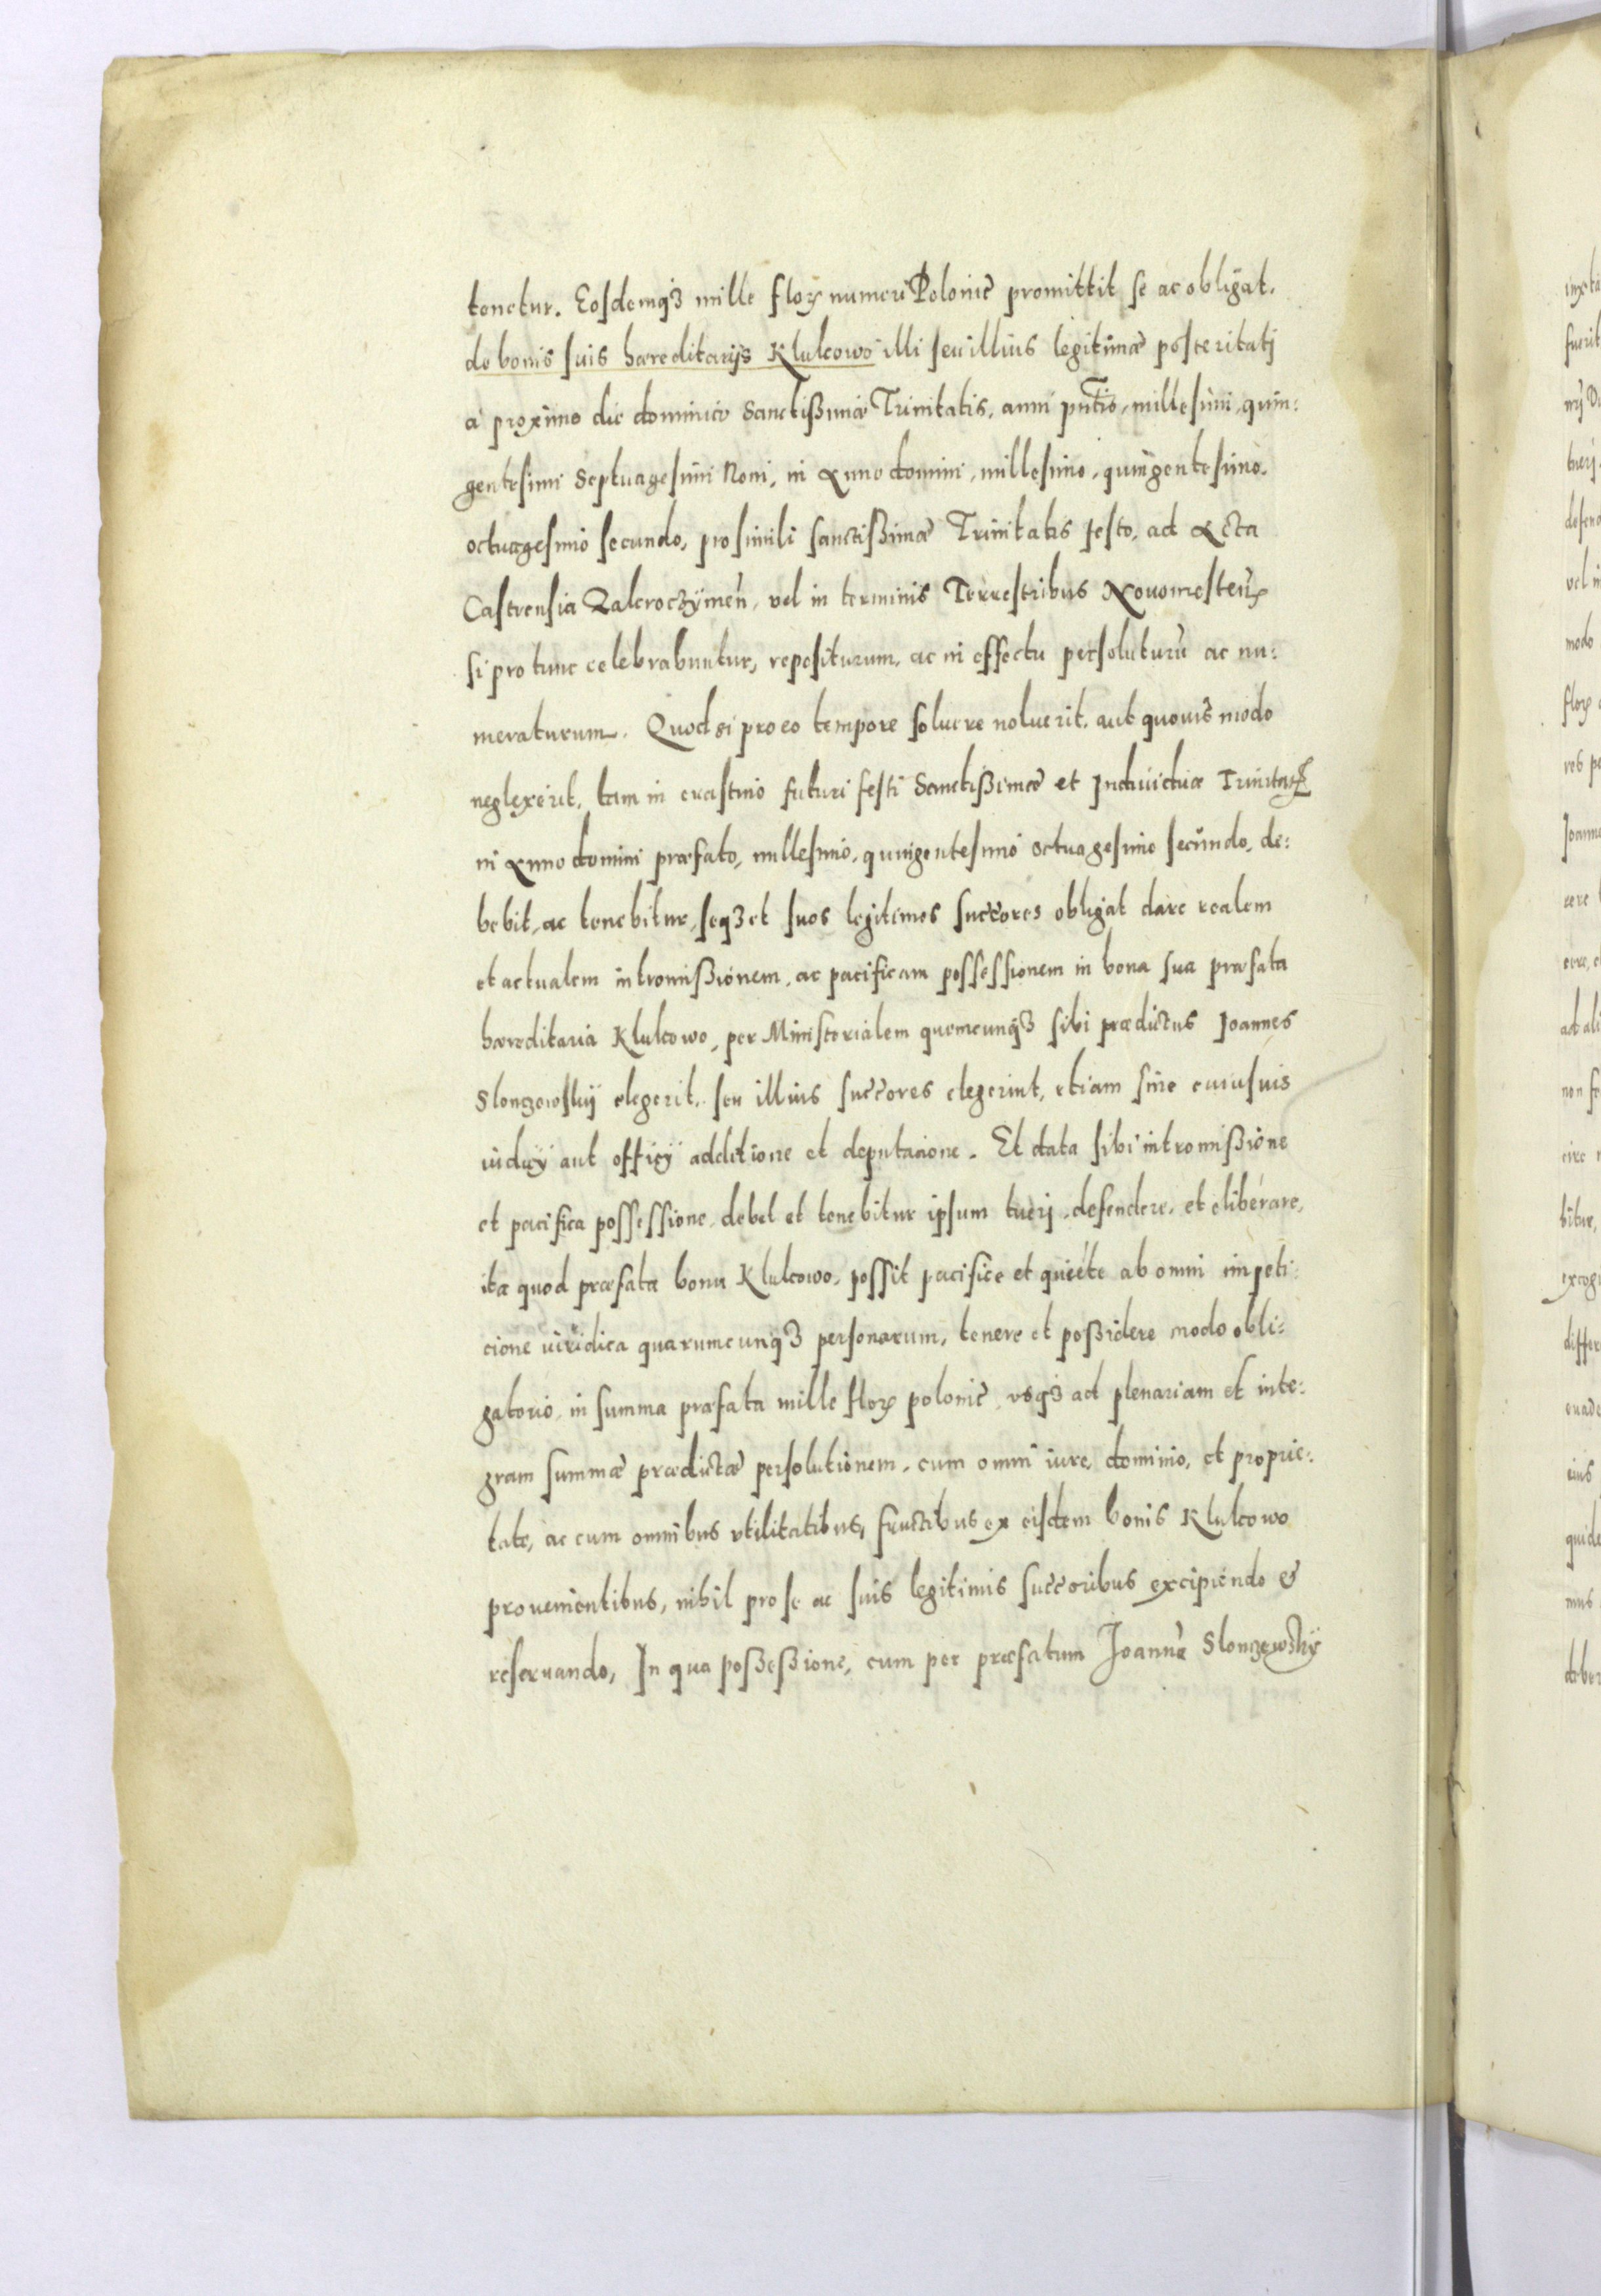 tenetur. Eosdemqȝ mille floꝝ numeri Polonic̃ promittit se ac obligat.
de bonis suis hæreditarijs Klulcowo illi seu illius legitimæ posteritatj
a proximo die dominico Sanctißimæ Trinitatis, anni pñtis, millesimi, quin:
gentesimi Septuagesimi Noni, in Anno domini, millesimo, quingentesimo.
octuagesimo secundo, pro simili sanctißimæ Trinitatis festo, ad Acta
Castrensia Zakroczÿmeñ, vel in terminis Terrestribus Nouomesteñ
si pro tunc celebrabuntur, repositurum, ac in effectu persoluturũ ac nu:
meraturum. Quod si pro eo tempore soluere noluerit, aut quouis modo
neglexerit, tam in crastino futuri festi Sanctißimæ et Indiuiduæ Trinitatꝭ
in Anno domini præfato, millesimo, quingentesimo octuagesimo secundo, de:
bebit, ac tenebitur, seqȝ et suos legitimos succ̃ores obligat dare realem
et actualem intromißionem, ac pacificam possessionem in bona sua præfata
hæreditaria Klulcowo, per Ministerialem quemcunqȝ sibi prædictus Joannes
Slonczowskÿ elegerit, seu illius succ̃ores elegerint, etiam sine cuiusuis
iudicÿ aut officÿ additione et deputacione. Et data sibi intromißione
et pacifica possessione, debet et tenebitur ipsum tuerj, defendere, et eliberare,
ita quod præfata bona Klulcowo, possit pacifice et quiete ab omni impeti:
cione iuridica quarumcunqȝ personarum, tenere et poßidere modo obli:
gatorio, in summa præfata mille floꝝ polonic̃, vsqȝ ad plenariam et inte:
gram summæ prædictæ persolutionem, cum omni iure, dominio, et proprie:
tate, ac cum omnibus vtilitatibus, fructibus ex eisdem bonis Klulcowo
prouenientibus, nihil pro se ac suis legitimis succ̃oribus excipiendo &
reseruando, In qua poßeßione, cum per præfatum Joannẽ Slonczewskÿ